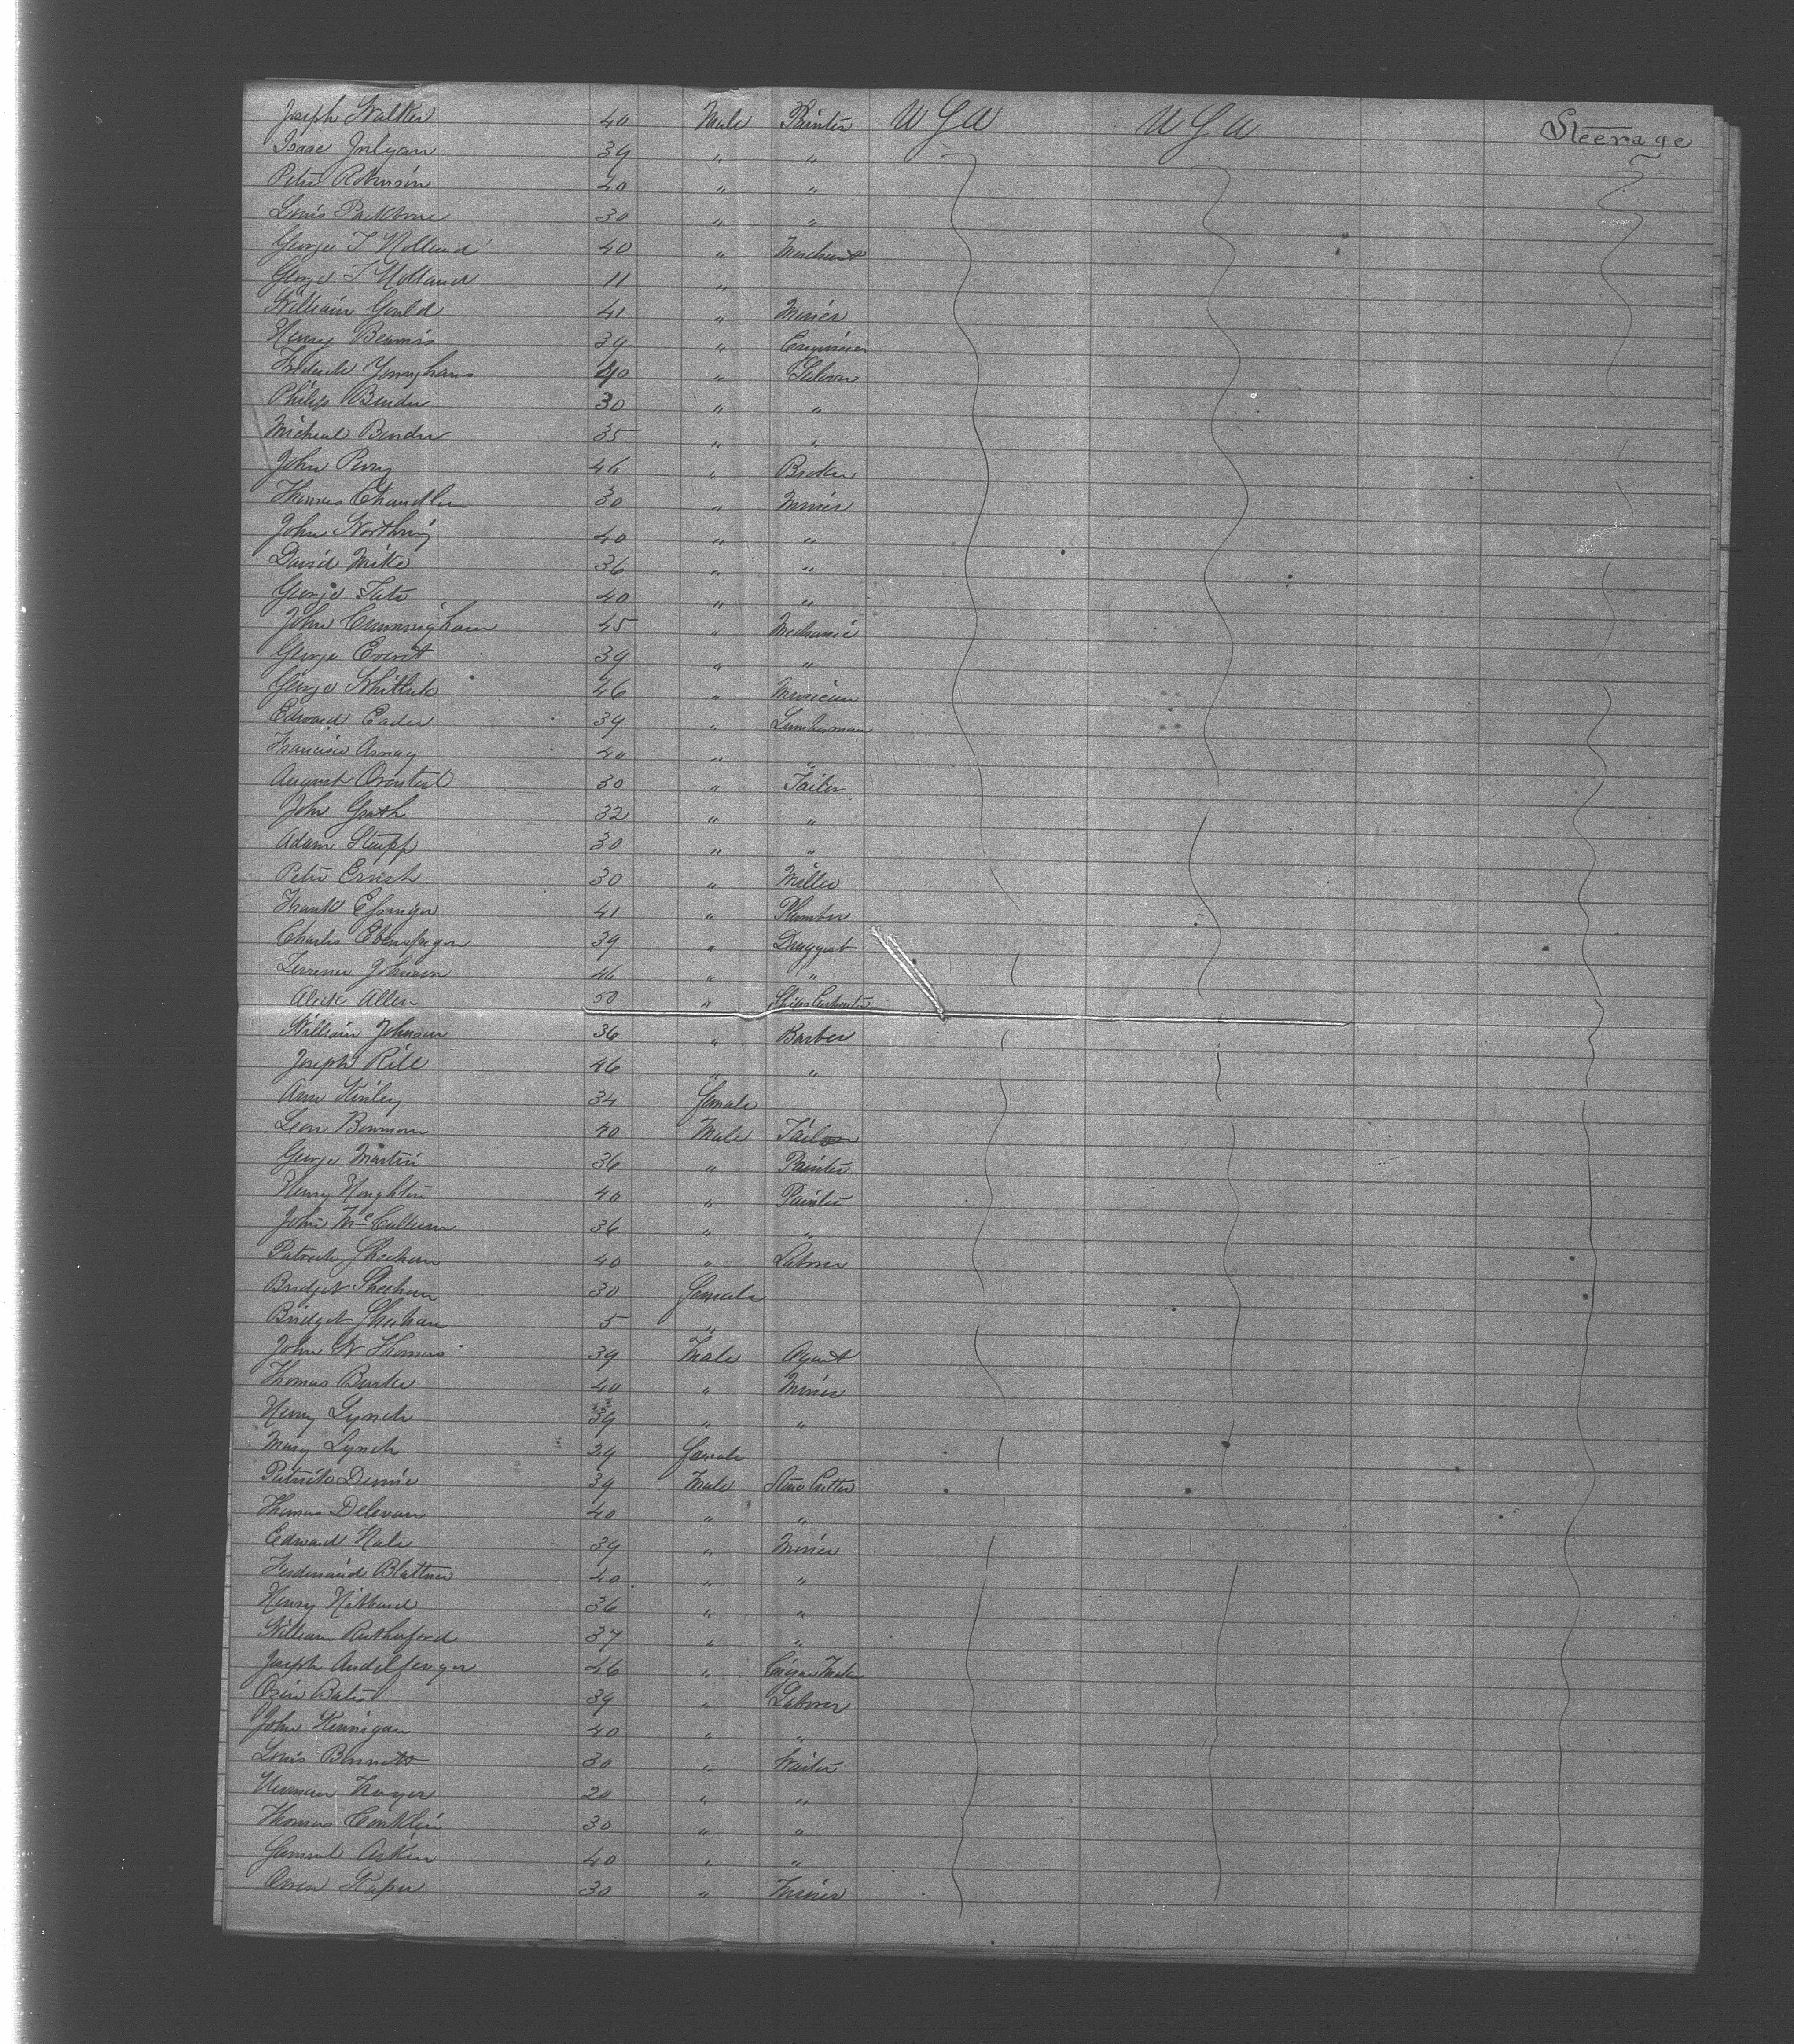 Joseph Walker 40 Male Painter U S A U S A Steerage
Isaac Julyan 39 " "
Peter Robinson 40 " "
Louis 30 " "
George T Holland 40 " Merchant
George T Holland 11 "
William Gould 41 " Miner
Henry Bemis 39 " Engineer
Yunghans 40 " Saloon
Philip Bender 30 " "
Micheal Bender 35 " "
John Perry 46 " Broker
Thomas Chandler 30 " Miner
John 40 " "
David Mike 36 " "
George Tate 40 " "
John Cunningham 45 " Mechanic
George Everett 39 " "
George 46 " Musician
Edward Eader 39 " Lumberman
Francisco 40 " "
August 30 " Tailor
John Groth 32 " "
Adam Stupp 30 " "
Peter Ernst 30 " Miller
Frank Essinger 41 " Plumber
Charles Ebenspeger 39 " Druggist
Terrence Johnson 46 " "
Aleck Allen 50 " Ships Carpenter
William Johnson 36 " Barber
Joseph Rill 46 " "
Ann Kinley 34 Female
Leon Bowman 40 Male Tailor
George Martin 36 " Printer
Henry Houghton 40 " Painter
John McCullum 36 " "
Patrick Sheehan 40 " Laborer
Bridget Sheehan 30 Female
Bridget Sheehan 5 "
John W Thomas 39 Male Agent
Thomas Burke 40 " Miner
Henry Lynch 39 " "
Mary Lynch 29 Female
Patrick 39 Male Stone Cutter
Thomas Delevan 40 " "
Edward Hale 39 " Miner
Ferdinand Blattner 40 " "
Henry Hibbard 36 " "
William Rutherford 37 " "
Joseph Andelfinger 46 " Cigar Maker
Bates 39 " Laborer
John Finnigan 40 " "
Louis Bennett 30 " Waiter
Herman Mayer 20 " "
Thomas Conklin 30 " "
Samuel Askin 40 " "
Owen 30 " Miner